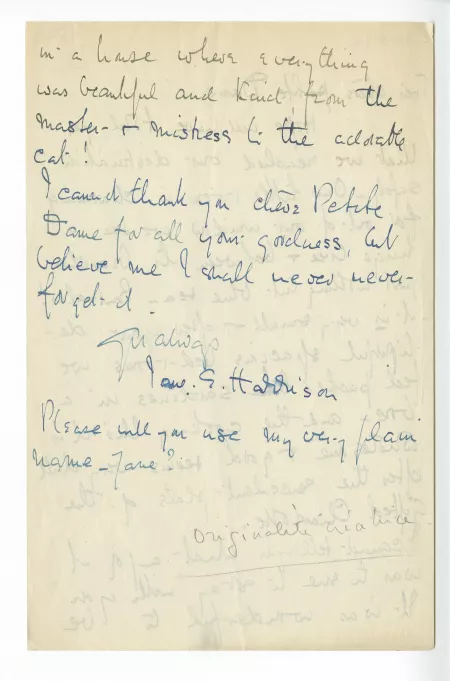 in a house where everything
was beautiful and kind, from the
master - & mistress to the adorable
cat!
I cannot thank you chère Petite
Dame for all your goodness, but
believe me I shall never never
forget it.
Yr always
Jane E. Harrison
Please will you use my very plain
name - Jane?
Originalité créatrice